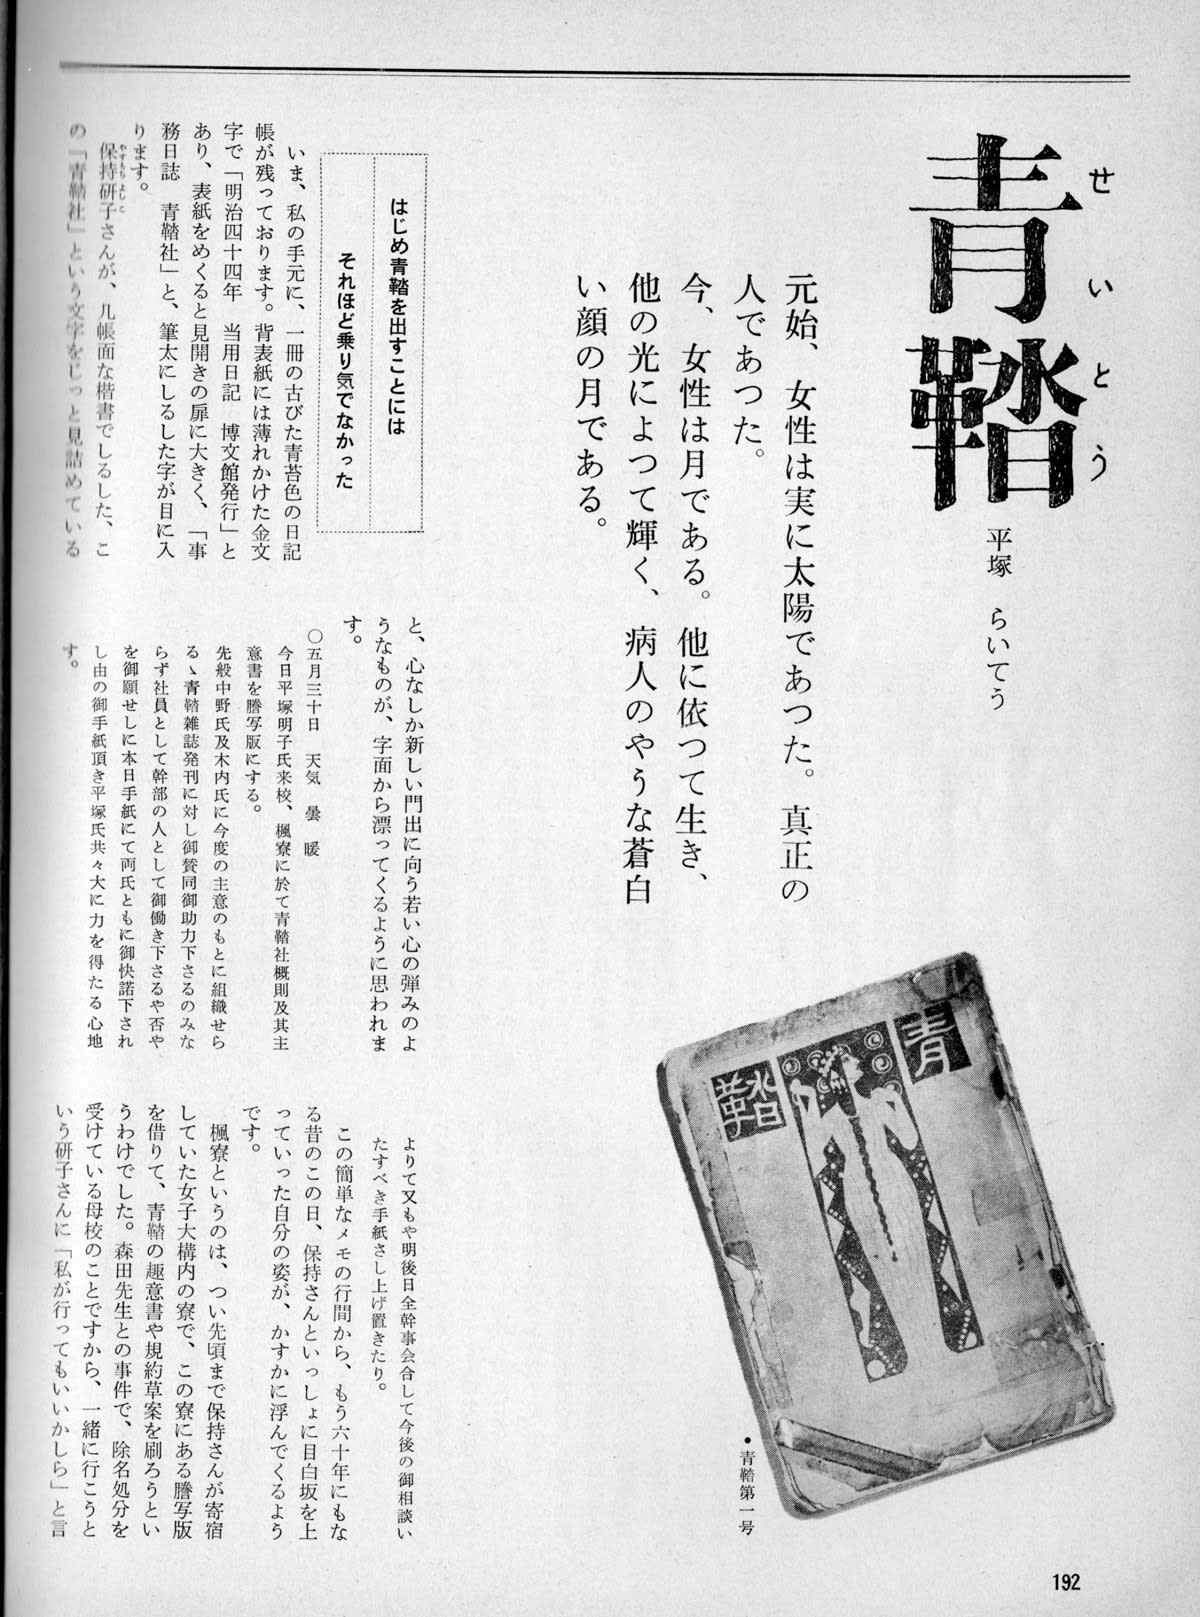 青鞜
せいとう
平塚 らいてう
元始、女性は実に太陽であつた。真正の
人であつた。
今、女性は月である。他に依つて生き、
他の光によつて輝く、病人のやうな蒼白
い顔の月である。
青
鞜
・青鞜第一号
はじめ青鞜を出すことには
それほど乗り気でなかった
いま、私の手元に、一冊の古びた青苔色の日記
帳が残っております。背表紙には薄れかけた金文
字で「明治四十四年 当用日記 博文館発行」と
あり、表紙をめくると見開きの扉に大きく、「事
務日誌 青鞜社」と、筆太にしるした字が目に入
ります。
保持研子さんが、几帳面な楷書でしるした、こ
やすもちよしこ
の「青鞜社」という文字をじっと見詰めている
と、心なしか新しい門出に向う若い心の弾みのよ
うなものが、字面から漂ってくるように思われま
す。
〇五月三十日 天気 曇 暖
今日平塚明子氏来校、楓寮に於て青鞜社概則及其主
意書を謄写版にする。
先般中野氏及木内氏に今度の主意のもとに組織せら
るゝ青鞜雑誌発刊に対し御賛同御助力下さるのみな
らず社員として幹部の人として御働き下さるや否や
を御願せしに本日手紙にて両氏ともに御快諾下され
し由の御手紙頂き平塚氏共々大に力を得たる心地
す。
よりて又もや明後日全幹事会合して今後の御相談い
たすべき手紙さし上げ置きたり。
この簡単なメモの行間から、もう六十年にもな
る昔のこの日、保持さんといっしょに目白坂を上
っていった自分の姿が、かすかに浮んでくるよう
です。
楓寮というのは、つい先頃まで保持さんが寄宿
していた女子大構内の寮で、この寮にある謄写版
を借りて、青鞜の趣意書や規約草案を刷ろうとい
うわけでした。森田先生との事件で、除名処分を
受けている母校のことですから、一緒に行こうと
いう研子さんに「私が行ってもいいかしら」と言
192